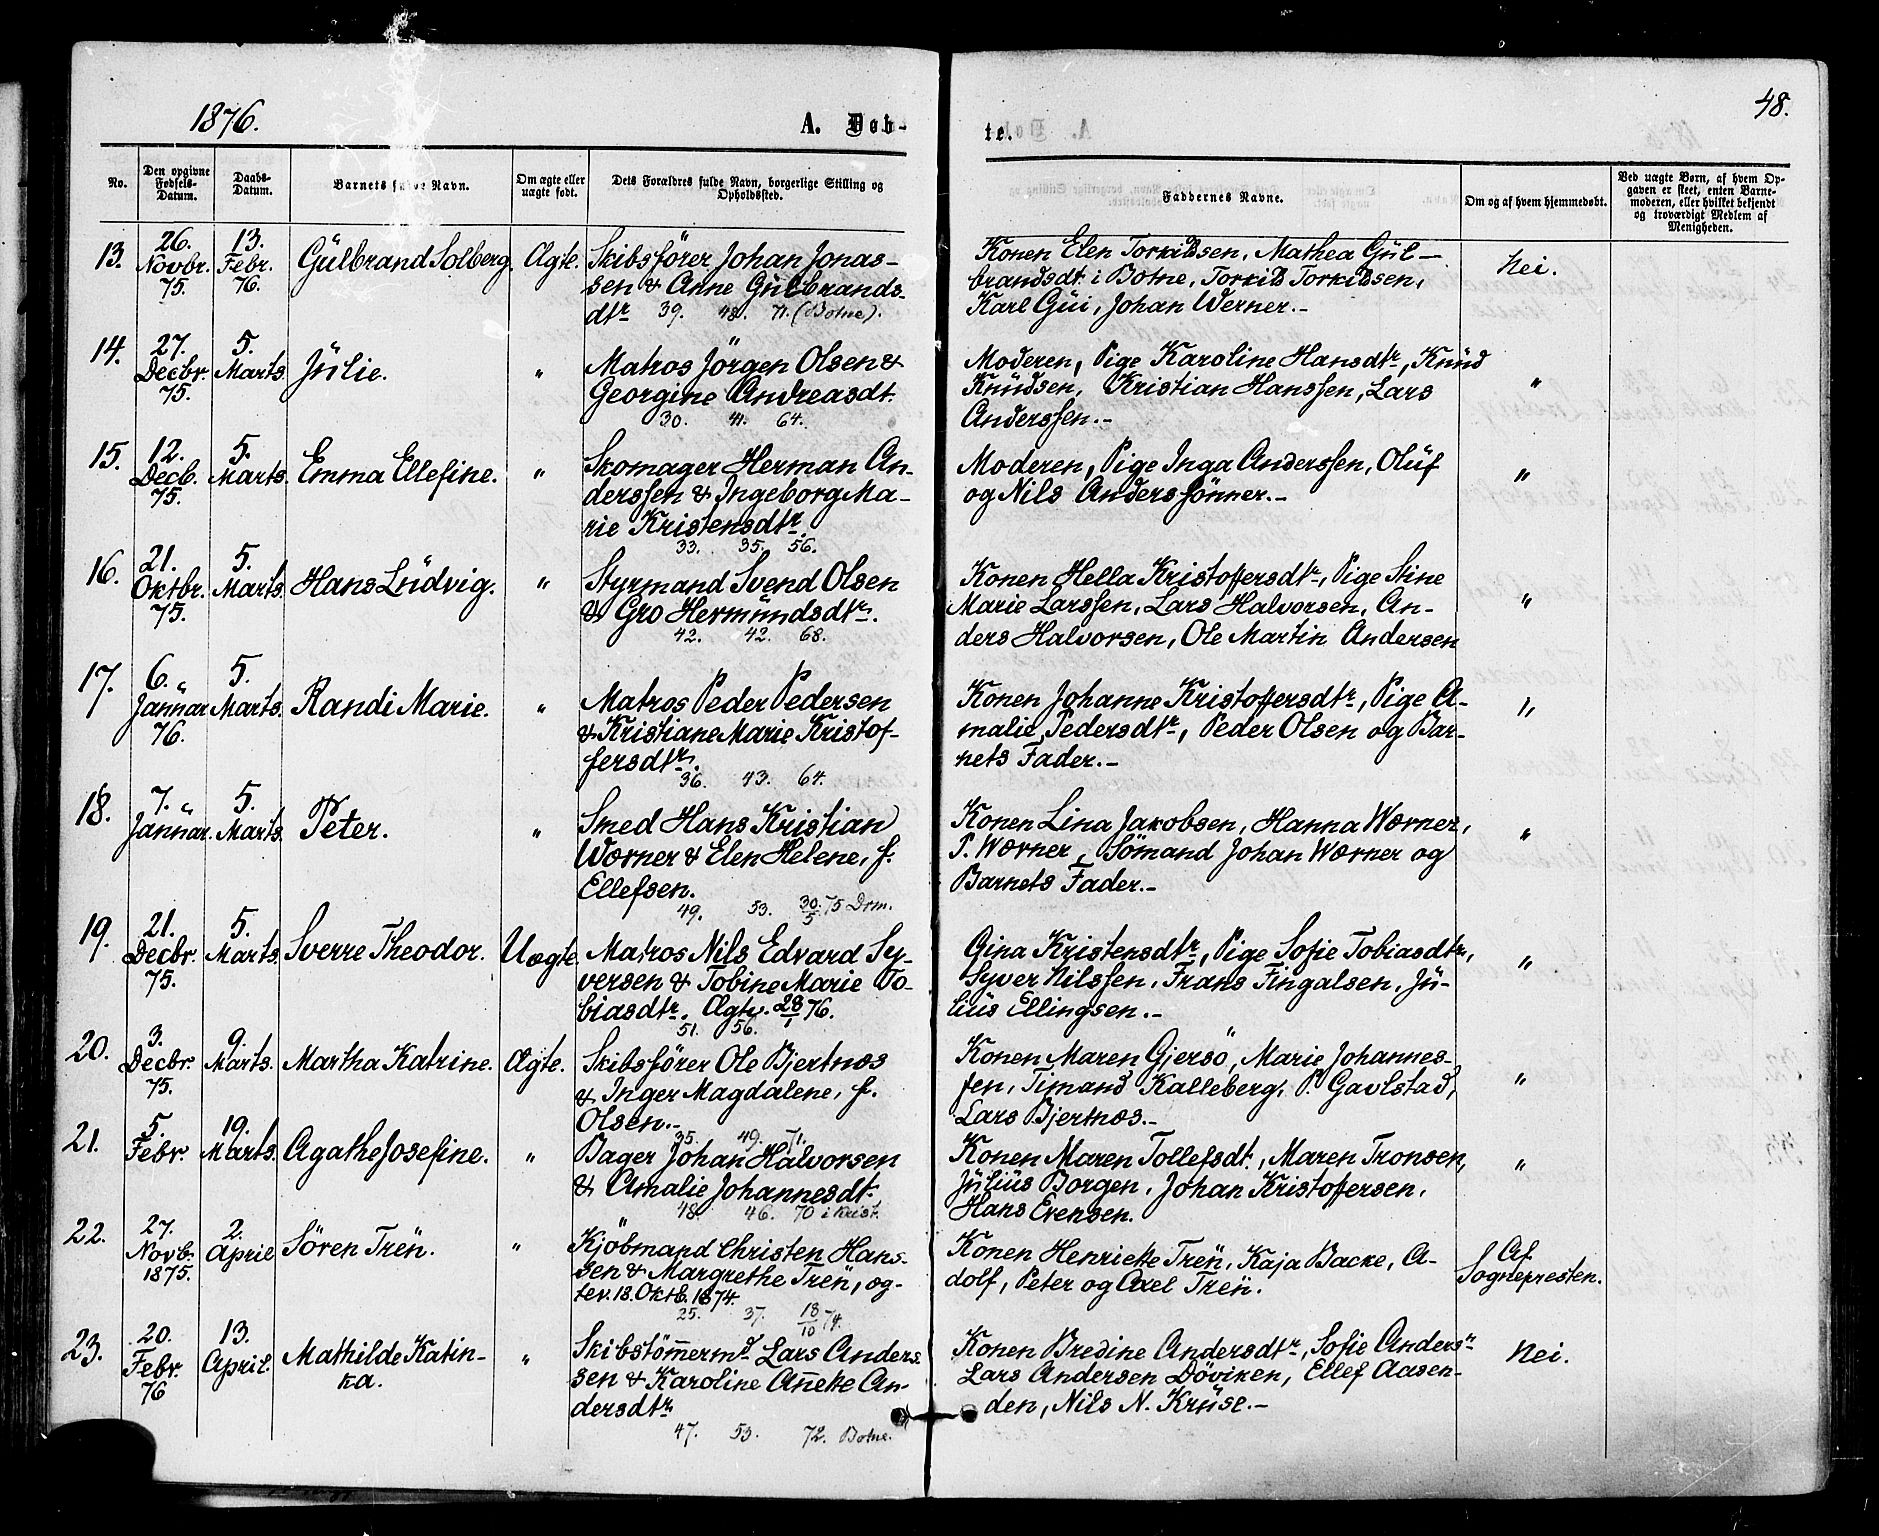 1876.
A. Døb-
te.
48.
No.
Den opgivne Fødsels-Datum.
Daabs-Datum.
Barnets fulde Navn.
Om ægte eller uægte født.
Dets Forældres fulde Navn, borgerlige Stilling og Opholdssted.
Faddernes Navne.
Om og af hvem hjemmedøbt.
Ved uægte Børn, af hvem Opgaven er skeet, enten Barnemoderen, eller hvilket bekjendt og troværdigt Medlem af Menigheden.
13. 26. Novbr. 75. 13. Febr. 76. Gülbrand Solberg. Ægte. Skibsförer Johan Jonas-
sen & Anne Gülbrands-
dtr 39. 48. 71. (Botne).
Konen Elen Torkildsen, Mathea Gül-
brandsdt. i Botne, Torkild Torkildsen,
Karl Güi, Johan Werner.-
Nei.
14. 27. Decbr. 75. 5. Marts. Jülie. " Matros Jörgen Olsen &
Georgine Andreasdt.
30. 41. 64.
Moderen, Pige Karoline Hansdtr, Knüd
Knüdsen, Kristian Hanssen, Lars
Anderssen.-
"
15. 12. Decb. 75. 5. Marts. Emma Ellefine. " Skomager Herman An-
derssen & Ingeborg Ma-
rie Kristensdtr.
33. 35. 56.
Moderen, Pige Inga Anderssen, Olüf
og Nils Anderssönner.-
"
16. 21. Oktbr. 75. 5. Marts. Hans Lüdvig. " Styrmand Svend Olsen
& Gro Hermündsdtr.
42. 42. 68.
Konen Hella Kristoffersdtr, Pige Stine
Marie Larssen, Lars Halvorsen, An-
ders Halvorsen, Ole Martin Andersen
"
17. 6. Janüar 76. 5. Marts. Randi Marie. " Matros Peder Pedersen
& Kristiane Marie Kristof-
fersdtr.
36. 43. 64.
Konen Johanne Kristoffersdtr, Pige A-
malie Pedersdtr, Peder Olsen og Bar-
nets Fader.-
"
18. 7. Janüar. 5. Marts. Peter. " Smed Hans Kristian
Wærner & Elen Helene, f.
Ellefsen.
49. 53. 30/5 75 Drm.
Konen Lina Jakobsen, Hanna Wærner,
P. Wærner, Sömand Johan Wærner og
Barnets Fader.-
"
19. 21. Decbr. 75. 5. Marts. Sverre Theodor. Uægte. Matros Nils Edvard Sy-
versen & Tobine Marie To-
biasdtr. Ægtv. 28/1 76.
51. 56.
Gina Kristensdtr, Pige Sofie Tobiasdtr,
Syver Nilssen, Frans Fingalsen, Jü-
liüs Ellingsen.-
"
20. 3. Decbr. 75. 9. Marts. Martha Katrine. Ægte. Skibsförer Ole Bjertnæs
& Inger Magdalene, f.
Olsen.-
35. 49. 71.
Konen Maren Gjersö, Marie Johannes-
sen, Timand Kalleberg, P. Gavlstad,
Lars Bjertnæs.-
"
21. 5. Febr. 19. Marts. Agathe Josefine. " Bager Johan Halvorsen
& Amalie Johannesdt.
48. 46. 70 i Krist.
Konen Maren Tollefsdt., Maren Tronsen,
Jüliüs Borgen, Johan Kristoffersen,
Hans Evensen.
"
22. 27. Novb. 1875. 2. April Sören Treü. " Kjöbmand Christen Hans-
sen & Margrethe Treü, æg-
tev. 18. Oktb. 1874.
25. 37. 18/10 74.
Konen Henriette Treü, Kaja Backe, A-
dolf, Peter og Axel Treü.
Af
Sognepresten.
23. 20. Febr. 76 13. April. Mathilde Katin-
ka. " Skibstömermd. Lars Anders-
sen & Karoline Anette An-
dersdtr
47. 53. 72. Botne.
Konen Bredine Andersdtr, Sofie Andersn
Lars Andersen Döviken, Ellef Aasen-
den, Nils N. Krüse.-
Nei.